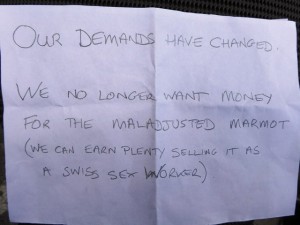 OUR DEMANDS HAVE CHANGED.
WE NO LONGER WANT MONEY
FOR THE MALADJUSTED MARMOT
(WE CAN EARN PLENTY SELLING IT AS
A SWISS SEX WORKER)